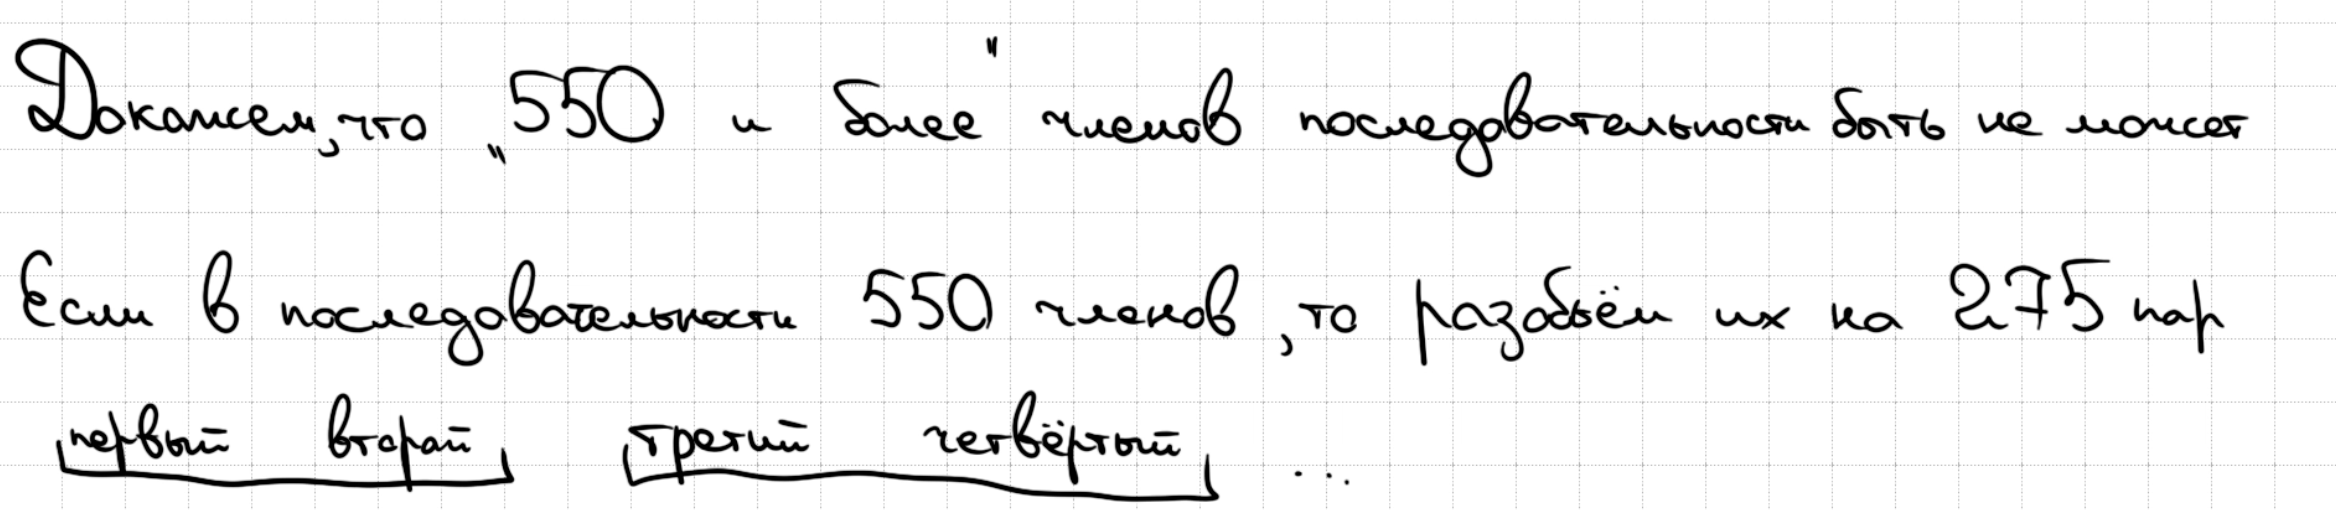 Докажем, что „550 и более" членов последовательности быть не может
Если в последовательности 550 членов, то разобьём их на 275 пар
первый второй третий четвёртый ...